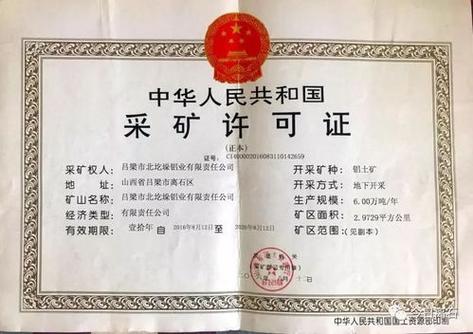 中华人民共和国
采矿许可证
(正本)
证号: C1400002016083110142659
采矿权人: 吕梁市北圪垛铝业有限责任公司
地址: 山西省吕梁市离石区
矿山名称: 吕梁市北圪垛铝业有限责任公司
经济类型: 有限责任公司
有效期限: 壹拾年 自2016年8月12日 至2026年8月12日
开采矿种: 铝土矿
开采方式: 地下开采
生产规模: 6.00万吨/年
矿区面积: 2.9729平方公里
矿区范围: (见副本)
中华人民共和国国土资源部印制